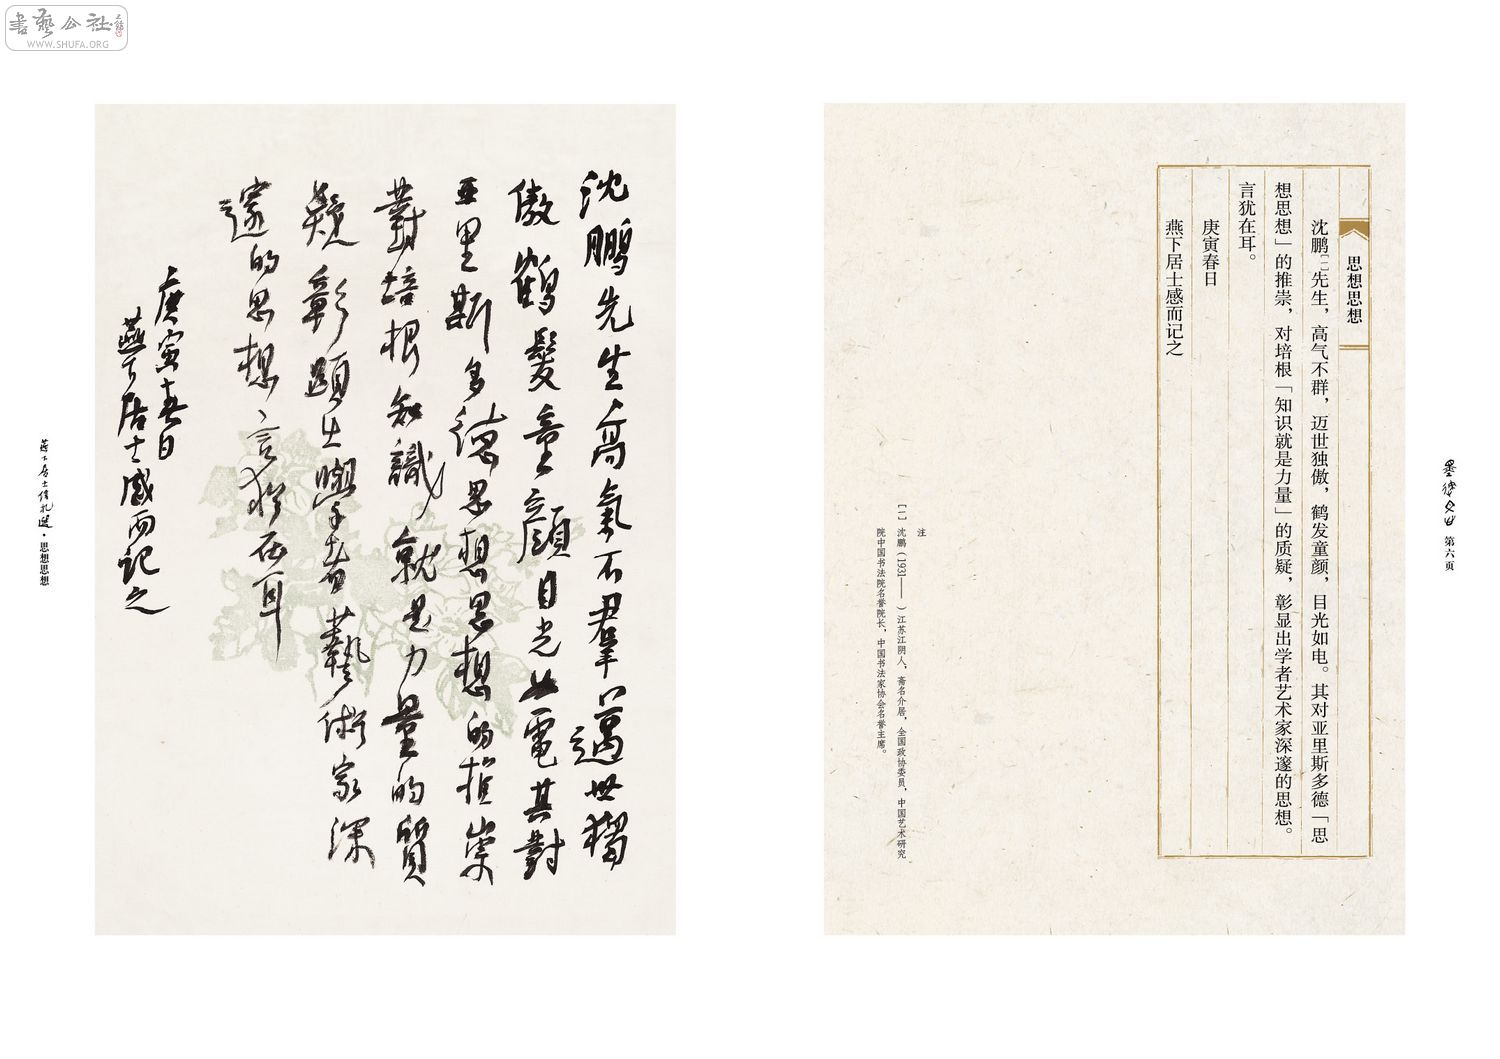 書藝公社
WWW.SHUFA.ORG
墨缘
第六页
思想思想
沈鹏[一]先生，高气不群，迈世独傲，鹤发童颜，目光如电。其对亚里斯多德「思
想思想」的推崇，对培根「知识就是力量」的质疑，彰显出学者艺术家深邃的思想。
言犹在耳。
庚寅春日
燕下居士感而记之
注
[一] 沈鹏（1931—— ）江苏江阴人，斋名介居，全国政协委员，中国艺术研究
院中国书法院名誉院长，中国书法家协会名誉主席。
沈鹏先生高氣不羣邁世獨
傲鶴髮童顏目光如電其對
亚里斯多德思想思想的推崇
對培根知識就是力量的質
疑彰顯出學者藝術家深
邃的思想言猶在耳
庚寅春日
燕下居士感而记之
燕下居士信札选·思想思想